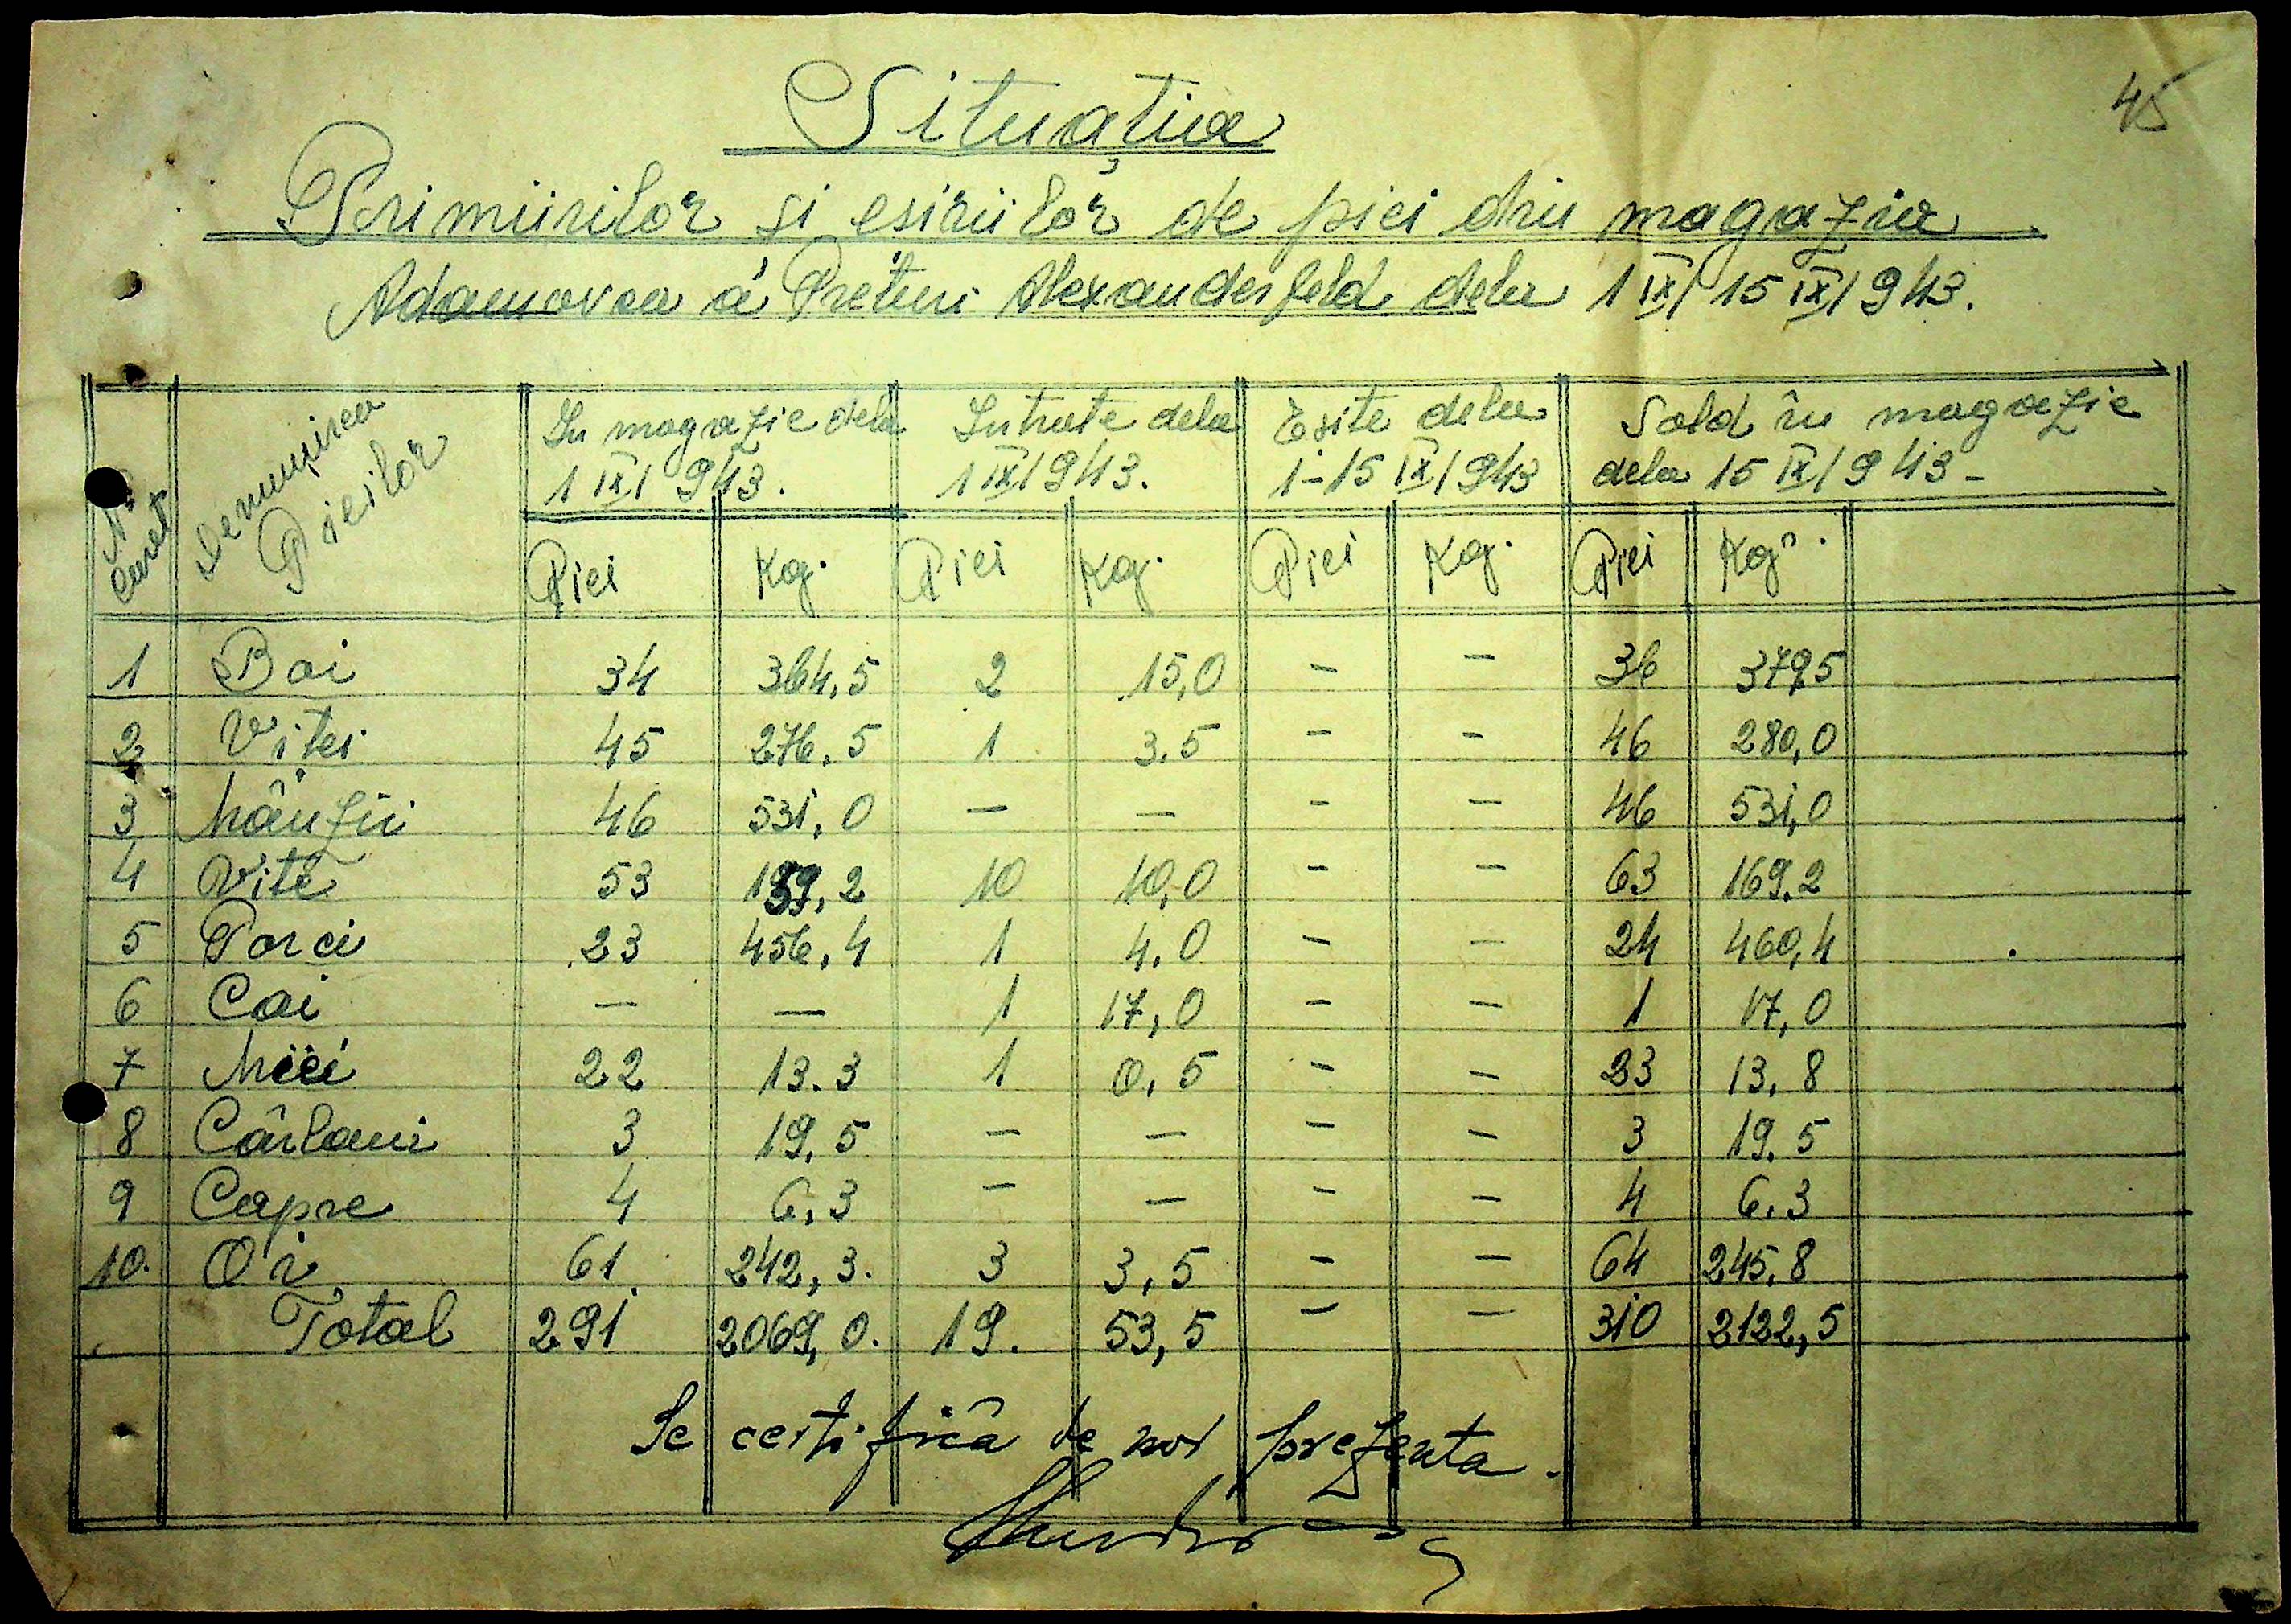 45
Situația
Primirilor și esirilor de piei din magazia
Adamovca a Preturi Alexanderfeld dela 1 IX/ 15 IX/943.
Nr. curet Denumirea Pieilor In magazie dela 1 IX/943. Intrate dela 1 IX/943. Esite dela 1-15 IX/943 Sold în magazie dela 15 IX/943-
Piei Kg. Piei Kg. Piei Kg. Piei Kg.
1 Boi 34 364,5 2 15,0 - - 36 379,5
2 Vitei 45 276,5 1 3,5 - - 46 280,0
3 Mânzii 46 531,0 - - - - 46 531,0
4 Vite 53 159,2 10 10,0 - - 63 169,2
5 Porci 23 456,4 1 4,0 - - 24 460,4
6 Cai - - 1 17,0 - - 1 17,0
7 Miei 22 13.3 1 0,5 - - 23 13,8
8 Cârlani 3 19,5 - - - - 3 19,5
9 Capre 4 6,3 - - - - 4 6,3
10. Oi 61. 242,3. 3 3,5 - - 64 245,8
Total 291 2069,0. 19. 53,5 - - 310 2122,5
Se certifică de noi prezenta.